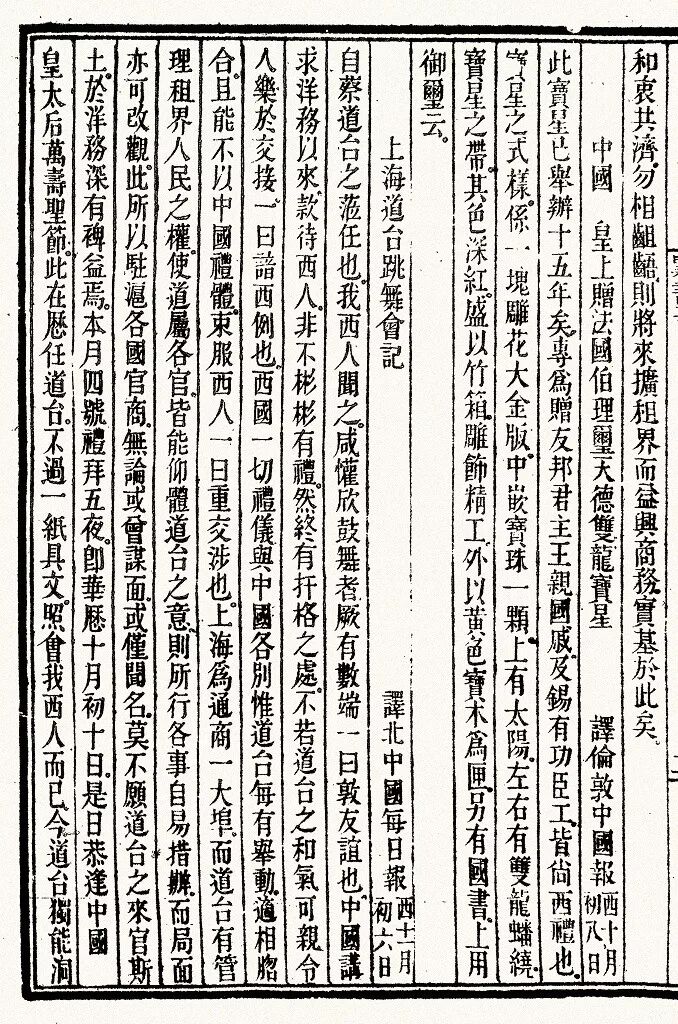 和衷共濟勿相齟齬則將來擴租界而益興商務實基於此矣。
中國　皇上贈法國伯理璽天德雙龍寶星　譯倫敦中國報西十月初八日
此寶星已舉辦十五年矣。專爲贈友邦君主王親國戚及錫有功臣工。皆尙西禮也。
寳星之式樣。係一塊雕花大金版。中嵌寶珠一顆。上有太陽。左右有雙龍蟠繞。
寶星之帶。其色深紅。盛以竹箱。雕飾精工。外以黃色寶木爲匣。另有國書。上用
御璽云。
上海道台跳舞會記　譯北中國每日報西十一月初六日
自蔡道台之蒞任也。我西人聞之。咸懽欣鼓舞者厥有數端一曰敦友誼也。中國講
求洋務以來。款待西人。非不彬彬有禮。然終有扞格之處。不若道台之和氣可親令
人樂於交接一曰諳西例也。西國一切禮儀與中國各別惟道台每有舉動。適相脗
合。且能不以中國禮體。束服西人一曰重交涉也。上海爲通商一大埠。而道台有管
理租界人民之權。使道屬各官。皆能仰體道台之意。則所行各事自易措辦。而局面
亦可改觀。此所以駐滬各國官商。無論或曾謀面。或僅聞名。莫不願道台之來官斯
土。於洋務深有裨益焉。本月四號禮拜五夜。卽華歷十月初十日。是日恭逢中國
皇太后萬壽聖節。此在歷任道台。不過一紙具文。照會我西人而已今道台獨能洞